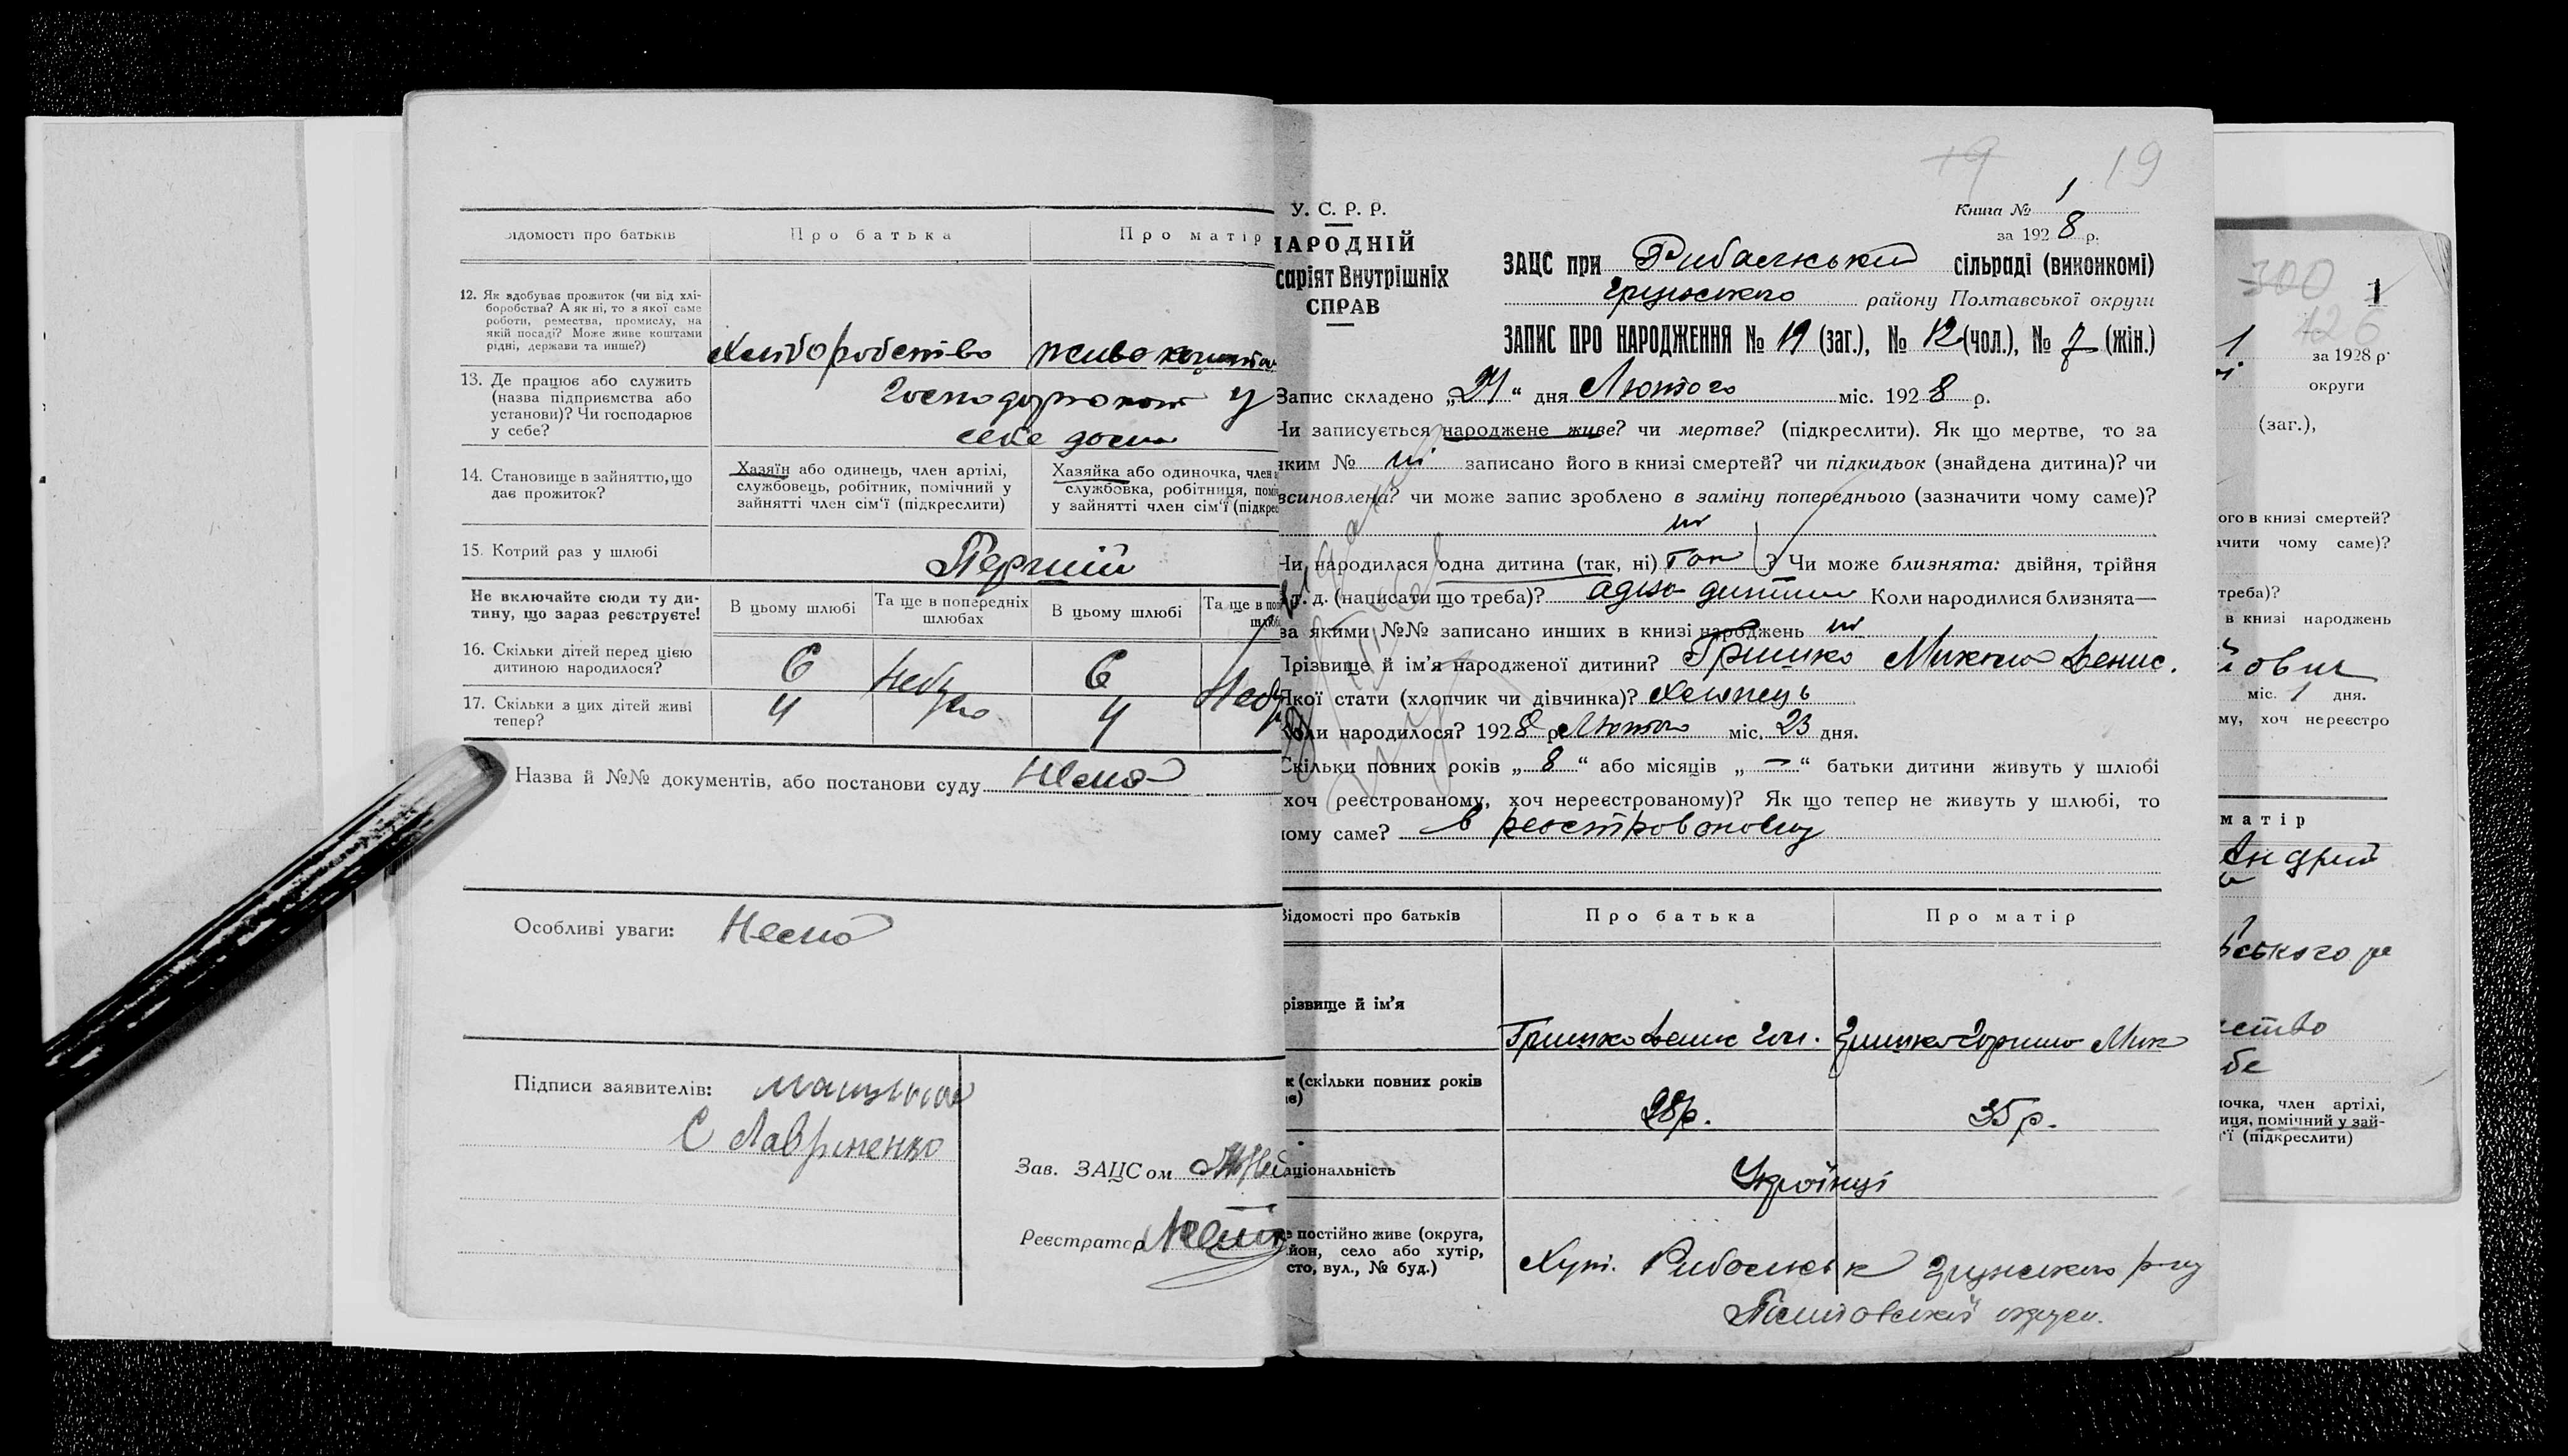 ідомості про батьків
Про батька
Про матір
12. Як здобуває прожиток (чи від хлі-
боробства? А як ні, то з якої саме
роботи, ремества, промислу, на
якій посаді? Може живе коштами
рідні, держави та инше?)
Хліборобство
13. Де працює або служить
(назва підприємства або
установи)? Чи господарює
у себе?
у
себе дома
14. Становище в зайняттю, що
дає прожиток?
Хазяїн або одинець, член артілі,
службовець, робітник, помічний у
зайнятті член сім'ї (підкреслити)
Хазяйка або одиночка, член
службовка, робітниця, пом
у зайнятті член сім'ї (підкре
15. Котрий раз у шлюбі
Перший
Не включайте сюди ту ди-
тину, що зараз реєструєте!
В цьому шлюбі
Та ще в попередніх
шлюбах
В цьому шлюбі
Та ще в поп
шлюб
16. Скільки дітей перед цією
дитиною народилося?
6
6
17. Скільки з цих дітей живі
тепер?
4
4
Назва й №№ документів, або постанови суду Нема
Особливі уваги: Нема
Підписи заявителів:
С Лавриненко
Зав. ЗАЦСом
Реєстратор
19 19
У. С. Р. Р.
НАРОДНІЙ
саріят Внутрішніх
СПРАВ
Книга № 1
за 1928 р.
ЗАЦС при Рибальський сільраді (виконкомі)
Грунського району Полтавської округи
ЗАПИС ПРО НАРОДЖЕННЯ № 19 (заг.), № 12 (чол.), № 7 (жін.)
Запис складено „24“ дня Лютого міс. 1928 р.
Чи записується народжене живе? чи мертве? (підкреслити). Як що мертве, то за
яким № ні записано його в книзі смертей? чи підкидьок (знайдена дитина)? чи
всиновлена? чи може запис зроблено в заміну попереднього (зазначити чому саме)?
ні
Чи народилася одна дитина (так, ні) так ? Чи може близнята: двійня, трійня
т. д. (написати що треба)? одна дитина Коли народилися близнята—
за якими №№ записано инших в книзі народжень ні
Прізвище й ім'я народженої дитини? Гришко Микола Денис.
Якої стати (хлопчик чи дівчинка)? Хлопець
Коли народилося? 1928 р. Лютого міс. 23 дня.
Скільки повних років „8“ або місяців „—“ батьки дитини живуть у шлюбі
хоч реєстрованому, хоч нереєстрованому)? Як що тепер не живуть у шлюбі, то
чому саме? в реєстрованому
Відомості про батьків
Про батька
Про матір
різвище й ім'я
Гришко Денис
Гришко Мик
к (скільки повних років
є)
28р.
35р.
аціональність
Українці
е постійно живе (округа,
йон, село або хутір,
сто, вул., № буд.)
Хут. Рибальськ Грунського р-ну
Полтавської округи.
300 1
126
1 за 1928 р.
округи
(заг.),
ого в книзі смертей?
ачити чому саме)?
треба)?
в книзі народжень
міс. 1 дня.
му, хоч нереєстро
матір
Андрий
ського ра
ство
бе
ночка, член артілі,
иця, помічний у зай-
ї (підкреслити)